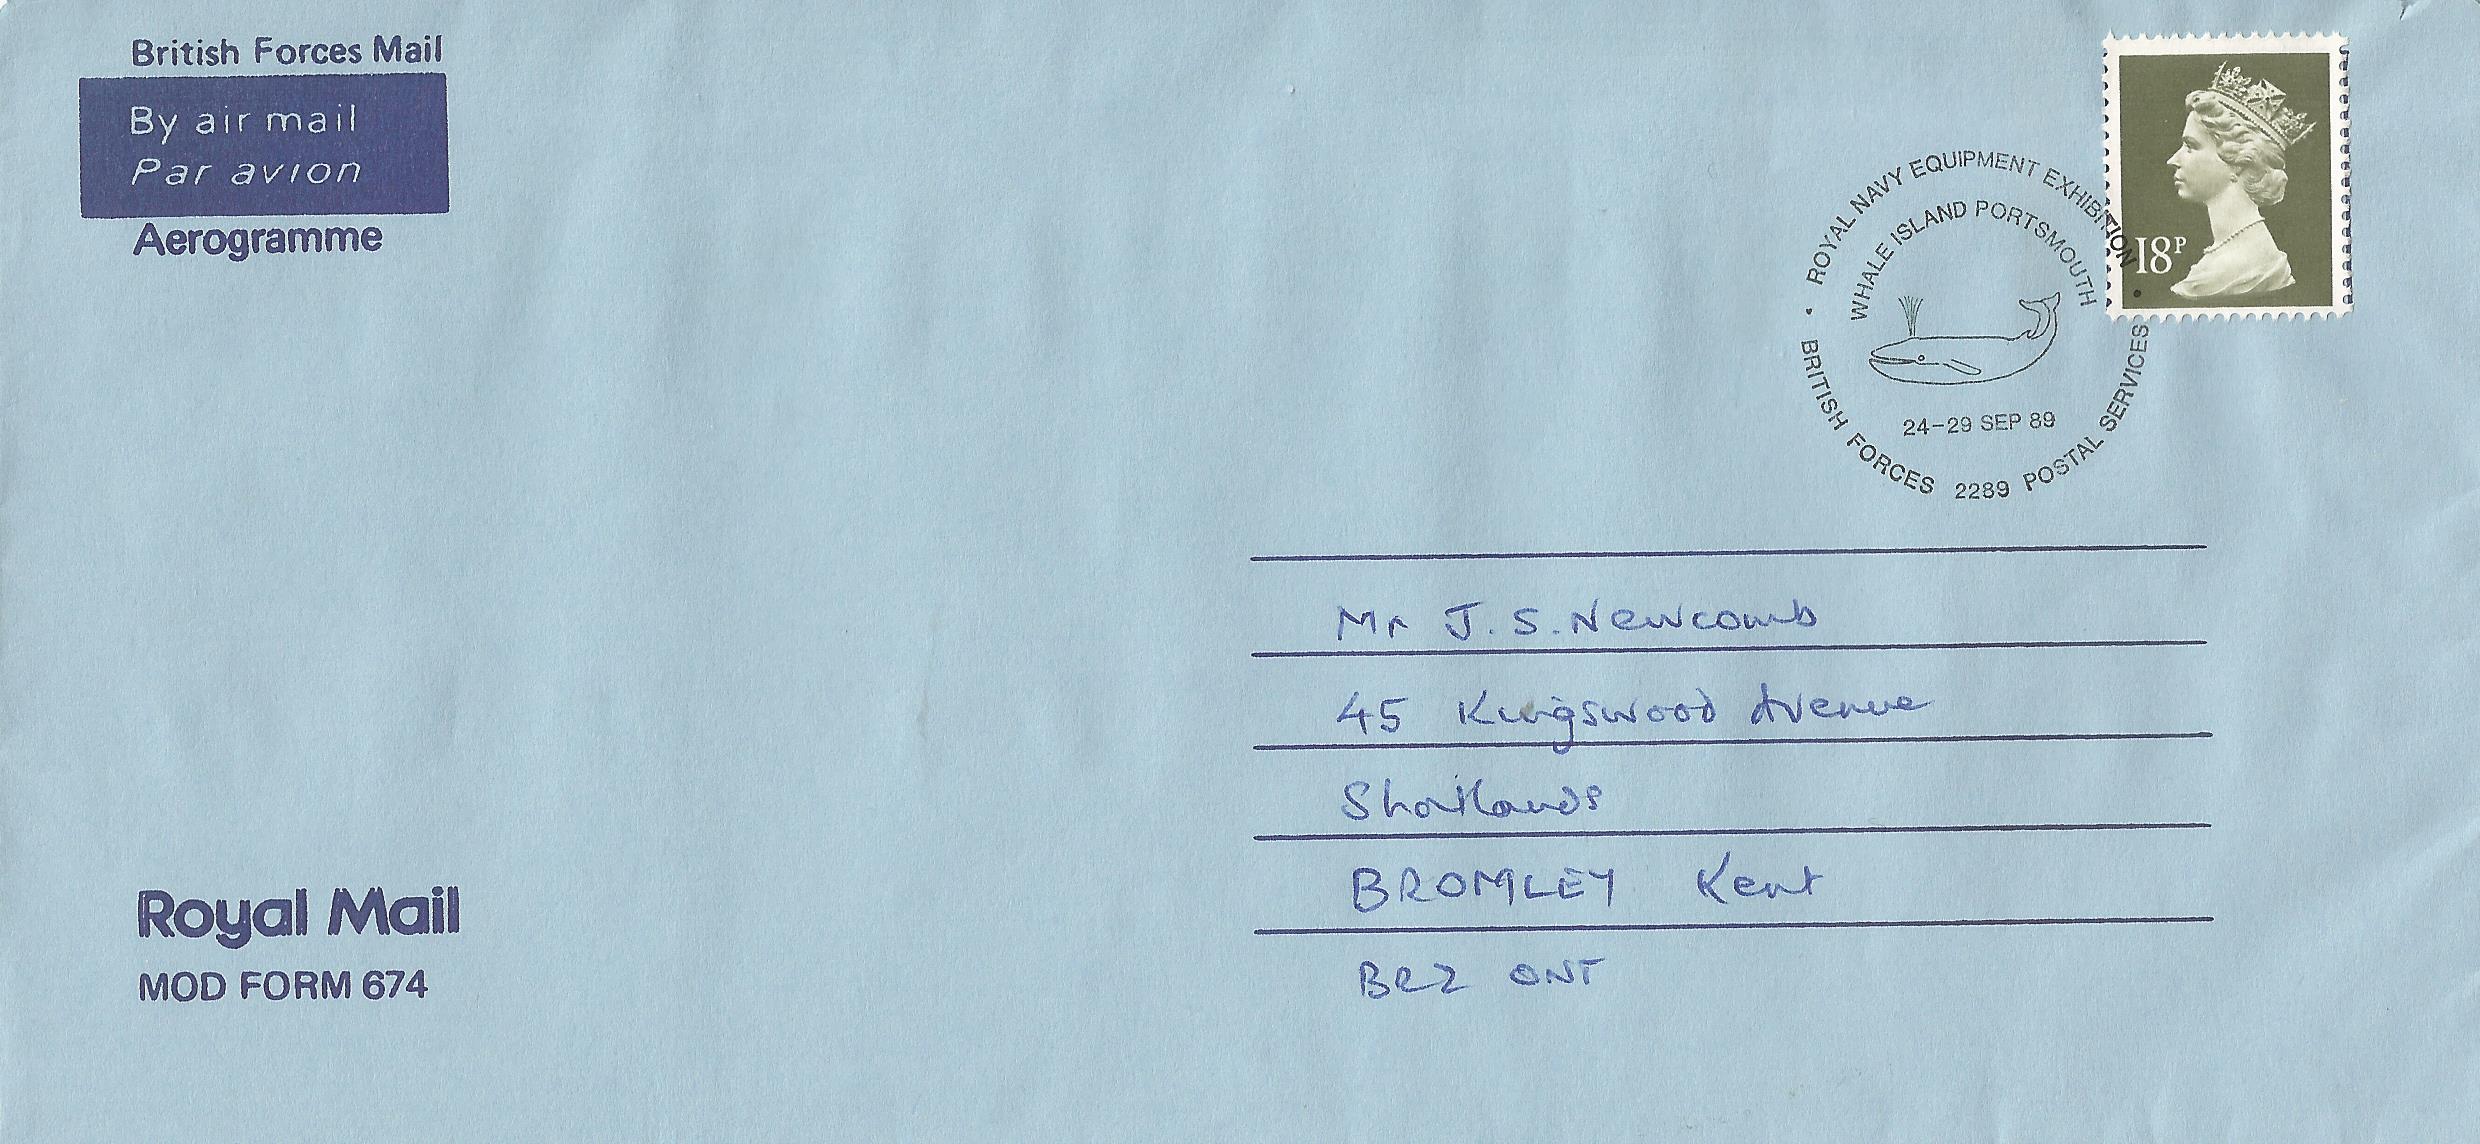 British Forces Mail
By air mail
Par avion
Aerogramme
18P
• ROYAL NAVY EQUIPMENT EXHIBITION •
WHALE ISLAND PORTSMOUTH
24-29 SEP 89
BRITISH FORCES 2289 POSTAL SERVICES
Mr J.S. Newcomb
45 Kingswood Avenue
Shortlands
BROMLEY Kent
BR2 0NT
Royal Mail
MOD FORM 674